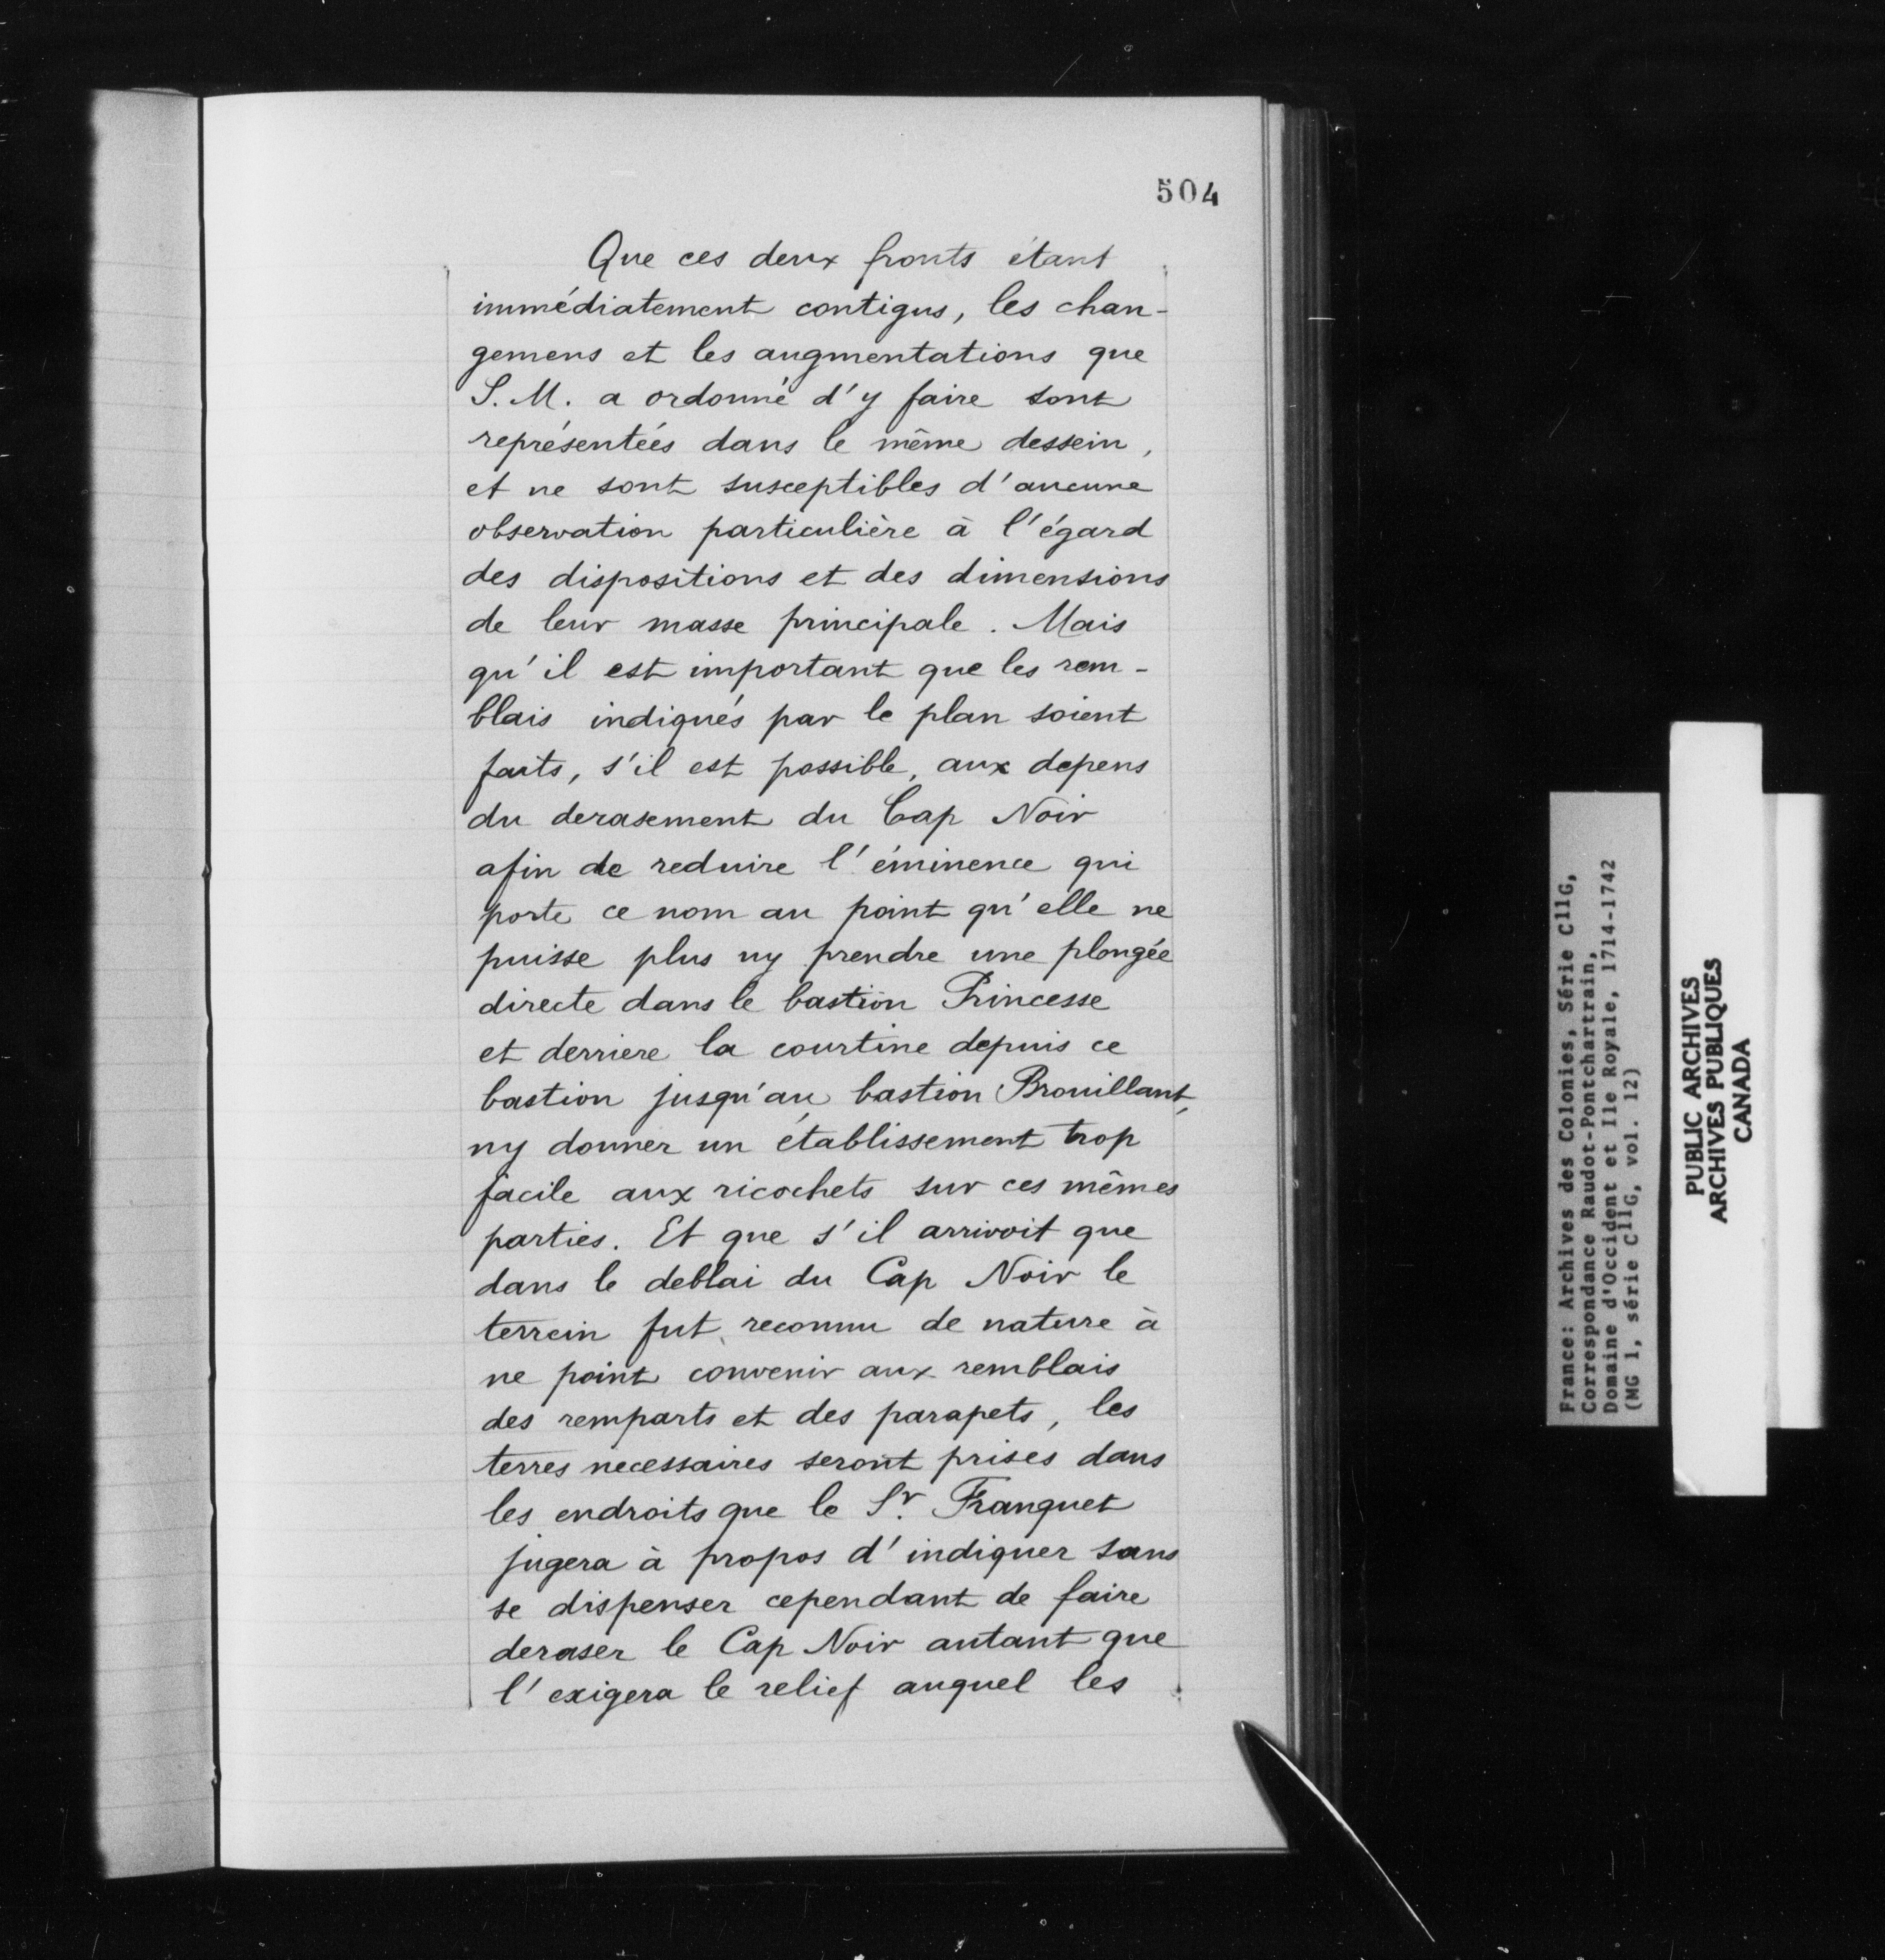 504
Que ces deux fronts étant
immédiatement contigus, les chan-
gemens et les augmentations que
S. M. a ordonné d'y faire sont
représentées dans le même dessein,
et ne sont susceptibles d'aucune
observation particulière à l'égard
des dispositions et des dimensions
de leur masse principale. Mais
qu'il est important que les rem-
blais indiqués par le plan soient
faits, s'il est possible, aux depens
du derasement du Cap Noir
afin de reduire l'éminence qui
porte ce nom au point qu'elle ne
puisse plus ny prendre une plongée
directe dans le bastion Princesse
et derriere la courtine depuis ce
bastion jusqu'au bastion Brouillant,
ny donner un établissement trop
facile aux ricochets sur ces mêmes
parties. Et que s'il arrivoit que
dans le deblai du Cap Noir le
terrein fut reconnu de nature à
ne point convenir aux remblais
des remparts et des parapets, les
terres necessaires seront prises dans
les endroits que le Sr. Franquet
jugera à propos d'indiquer sans
se dispenser cependant de faire
deraser le Cap Noir autant que
l'exigera le relief auquel les
France: Archives des Colonies, Série C11G,
Correspondance Raudot-Pontchartrain,
Domaine d'Occident et Ile Royale, 1714-1742
(MG 1, série C11G, vol. 12)
PUBLIC ARCHIVES
ARCHIVES PUBLIQUES
CANADA